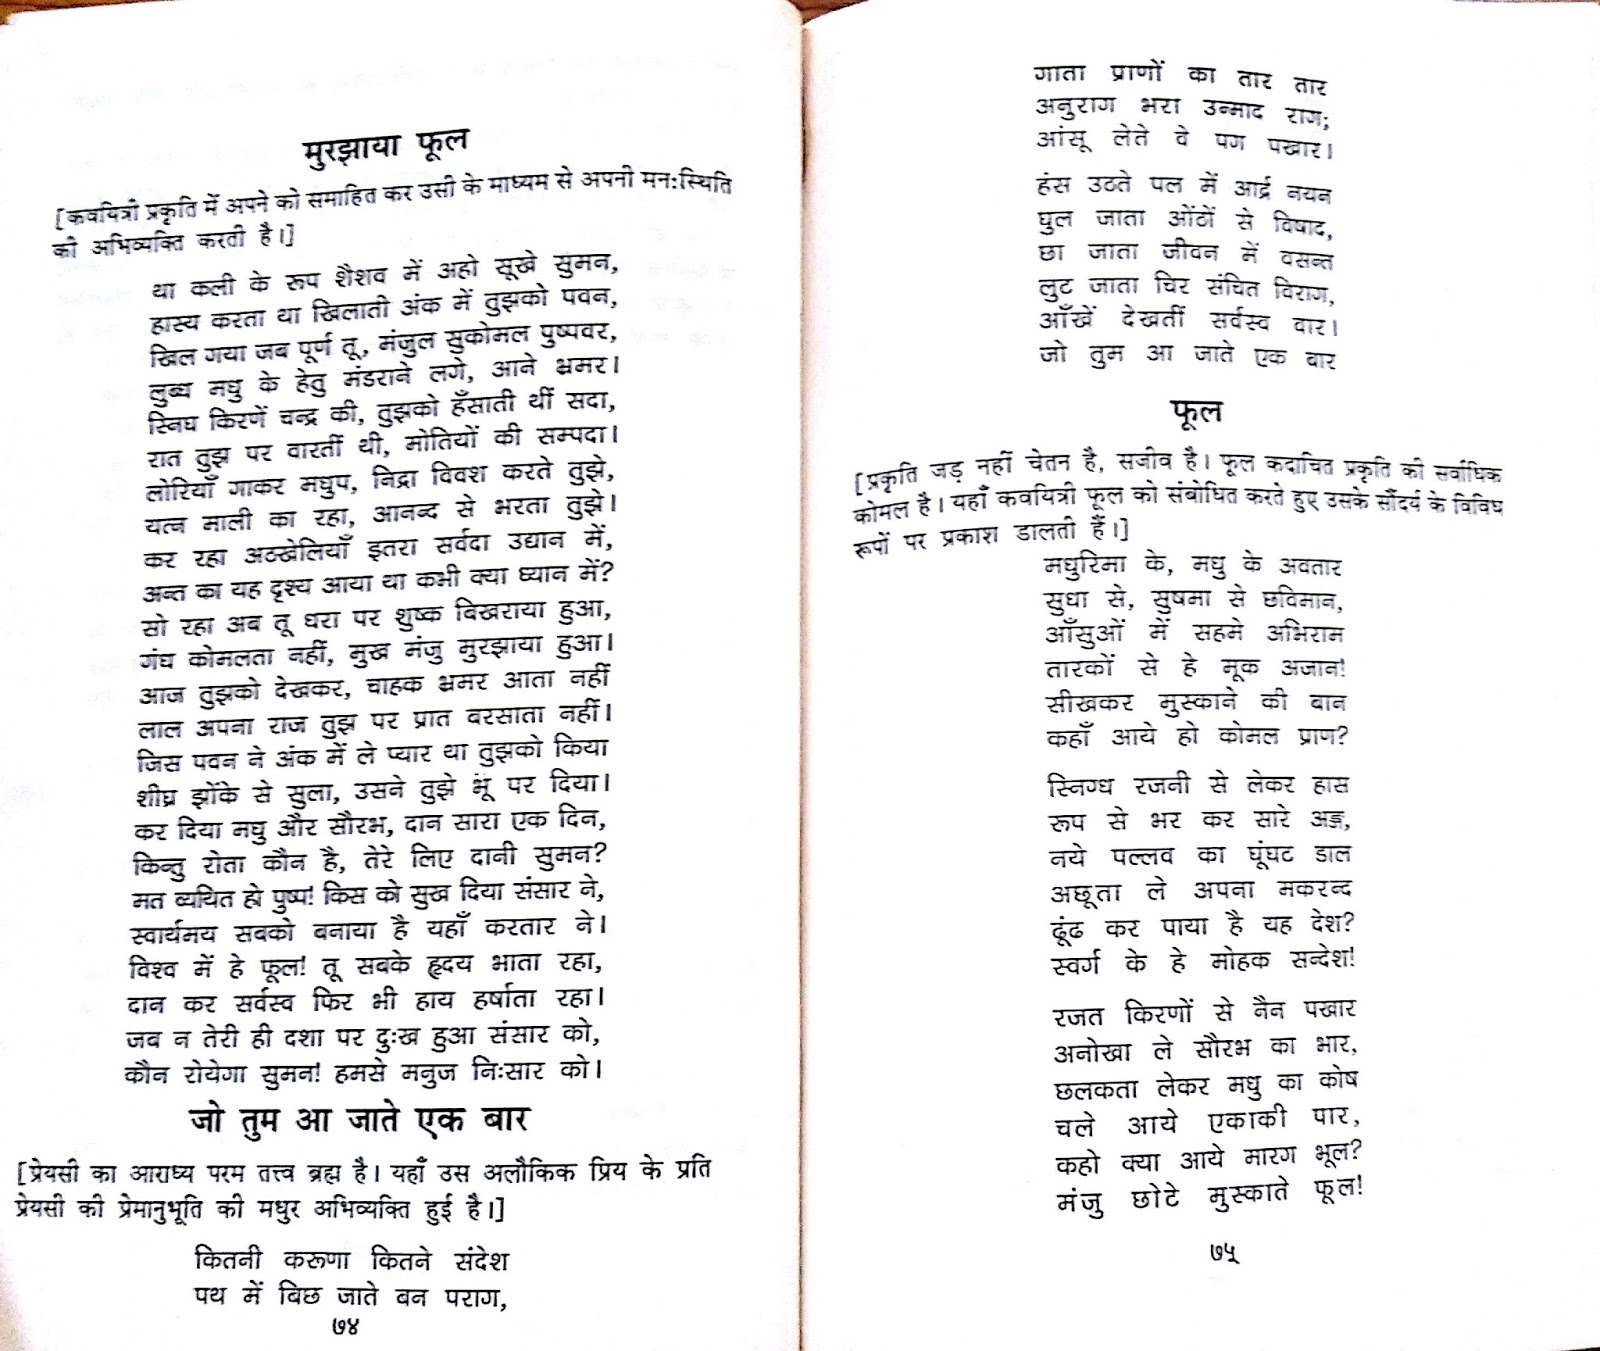 मुरझाया फूल
[कवयित्री प्रकृति में अपने को समाहित कर उसी के माध्यम से अपनी मन:स्थिति
की अभिव्यक्ति करती है।]
था कली के रूप शैशव में अहो सूखे सुमन,
हास्य करता था खिलाती अंक में तुझको पवन,
खिल गया जब पूर्ण तू, मंजुल सुकोमल पुष्पवर,
लुब्ध मधु के हेतु मंडराने लगे, आने भ्रमर।
स्निघ किरणें चन्द्र की, तुझको हँसाती थीं सदा,
रात तुझ पर वारतीं थी, मोतियों की सम्पदा।
लोरियाँ गाकर मधुप, निद्रा विवश करते तुझे,
यत्न माली का रहा, आनन्द से भरता तुझे।
कर रहा अठखेलियाँ इतरा सर्वदा उद्यान में,
अन्त का यह दृश्य आया था कभी क्या ध्यान में?
सो रहा अब तू धरा पर शुष्क बिखराया हुआ,
गंध कोमलता नहीं, मुख मंजु मुरझाया हुआ।
आज तुझको देखकर, चाहक भ्रमर आता नहीं
लाल अपना राज तुझ पर प्रात बरसाता नहीं।
जिस पवन ने अंक में ले प्यार था तुझको किया
शीघ्र झोंके से सुला, उसने तुझे भूं पर दिया।
कर दिया मधु और सौरभ, दान सारा एक दिन,
किन्तु रोता कौन है, तेरे लिए दानी सुमन?
मत व्यथित हो पुष्प! किस को सुख दिया संसार ने,
स्वार्थमय सबको बनाया है यहाँ करतार ने।
विश्व में हे फूल! तू सबके हृदय भाता रहा,
दान कर सर्वस्व फिर भी हाय हर्षाता रहा।
जब न तेरी ही दशा पर दुःख हुआ संसार को,
कौन रोयेगा सुमन! हमसे मनुज निःसार को।
जो तुम आ जाते एक बार
[प्रेयसी का आराध्य परम तत्त्व ब्रह्म है। यहाँ उस अलौकिक प्रिय के प्रति
प्रेयसी की प्रेमानुभूति की मधुर अभिव्यक्ति हुई है।]
कितनी करूणा कितने संदेश
पथ में बिछ जाते बन पराग,
७४
गाता प्राणों का तार तार
अनुराग भरा उन्माद राग;
आंसू लेते वे पग पखार।
हंस उठते पल में आर्द्र नयन
घुल जाता ओंठों से विषाद,
छा जाता जीवन में वसन्त
लुट जाता चिर संचित विराग,
आँखें देखतीं सर्वस्व वार।
जो तुम आ जाते एक बार
फूल
[प्रकृति जड़ नहीं चेतन है, सजीव है। फूल कदाचित प्रकृति की सर्वाधिक
कोमल है। यहाँ कवयित्री फूल को संबोधित करते हुए उसके सौंदर्य के विविध
रूपों पर प्रकाश डालती हैं।]
मधुरिमा के, मधु के अवतार
सुधा से, सुषमा से छविमान,
आँसुओं में सहमे अभिराम
तारकों से हे मूक अजान!
सीखकर मुस्काने की बान
कहाँ आये हो कोमल प्राण?
स्निग्ध रजनी से लेकर हास
रूप से भर कर सारे अङ्ग,
नये पल्लव का घूंघट डाल
अछूता ले अपना मकरन्द
ढूंढ कर पाया है यह देश?
स्वर्ग के हे मोहक सन्देश!
रजत किरणों से नैन पखार
अनोखा ले सौरभ का भार,
छलकता लेकर मधु का कोष
चले आये एकाकी पार,
कहो क्या आये मारग भूल?
मंजु छोटे मुस्काते फूल!
७५